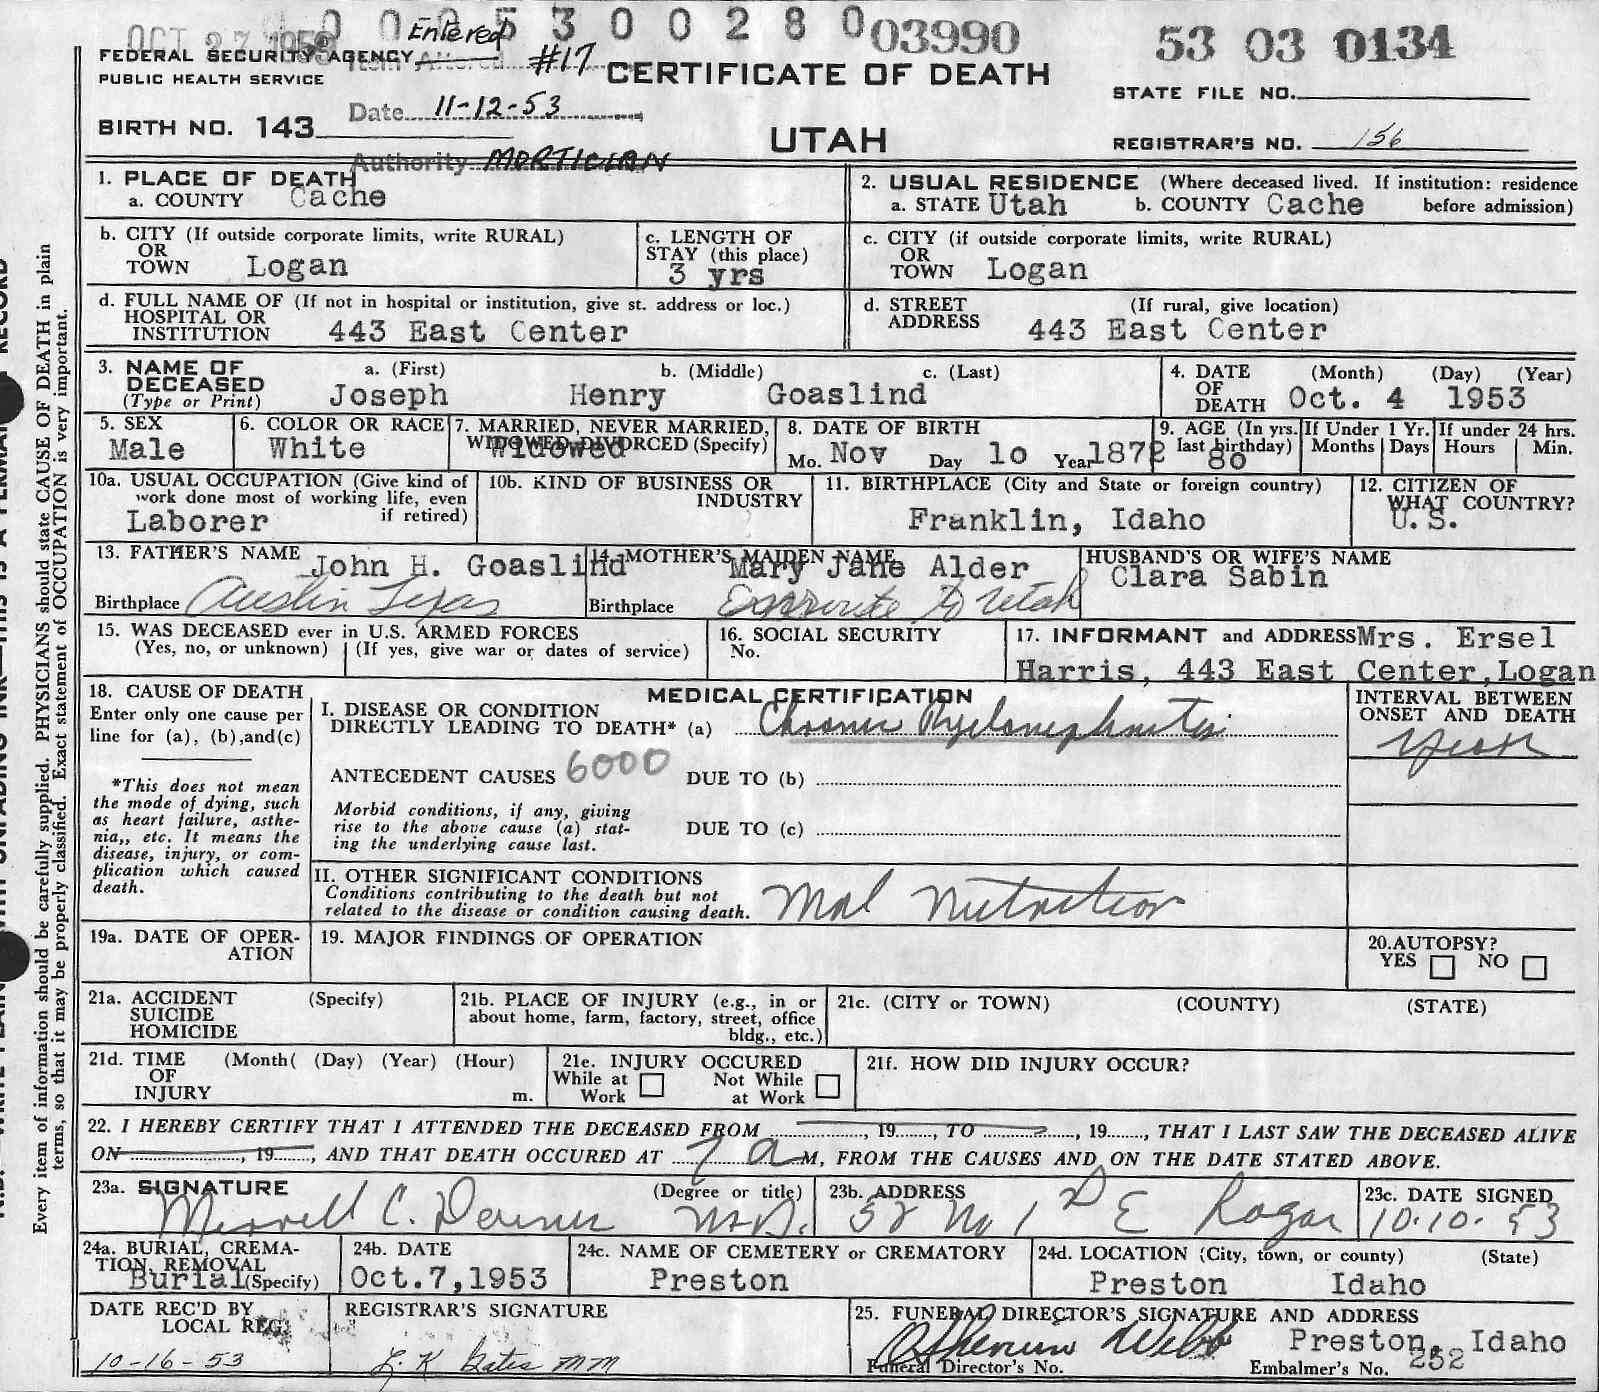 OCT 27 1953 0 0 0 5 3 0 0 2 8 0 03990 53 03 0134
FEDERAL SECURITY AGENCY Entered #17 CERTIFICATE OF DEATH
PUBLIC HEALTH SERVICE STATE FILE NO.
Date 11-12-53
BIRTH NO. 143 UTAH REGISTRAR'S NO. 156
Authority MORTICIAN
1. PLACE OF DEATH
a. COUNTY Cache
2. USUAL RESIDENCE (Where deceased lived. If institution: residence
a. STATE Utah b. COUNTY Cache before admission)
b. CITY (If outside corporate limits, write RURAL)
OR
TOWN Logan
c. LENGTH OF
STAY (this place)
3 yrs
c. CITY (if outside corporate limits, write RURAL)
OR
TOWN Logan
d. FULL NAME OF (If not in hospital or institution, give st. address or loc.)
HOSPITAL OR
INSTITUTION 443 East Center
d. STREET (If rural, give location)
ADDRESS 443 East Center
3. NAME OF a. (First) b. (Middle) c. (Last)
DECEASED
(Type or Print) Joseph Henry Goaslind
4. DATE (Month) (Day) (Year)
OF
DEATH Oct. 4 1953
5. SEX
Male
6. COLOR OR RACE
White
7. MARRIED, NEVER MARRIED,
WIDOWED, DIVORCED (Specify)
Widowed
8. DATE OF BIRTH
Mo. Nov Day 10 Year 1872
9. AGE (In yrs.
last birthday)
80
If Under 1 Yr.
Months Days
If under 24 hrs.
Hours Min.
10a. USUAL OCCUPATION (Give kind of
work done most of working life, even
if retired)
Laborer
10b. KIND OF BUSINESS OR
INDUSTRY
11. BIRTHPLACE (City and State or foreign country)
Franklin, Idaho
12. CITIZEN OF
WHAT COUNTRY?
U.S.
13. FATHER'S NAME John H. Goaslind
Birthplace Austin Texas
14. MOTHER'S MAIDEN NAME
Mary Jane Alder
Birthplace Enroute to Utah
HUSBAND'S OR WIFE'S NAME
Clara Sabin
15. WAS DECEASED ever in U.S. ARMED FORCES
(Yes, no, or unknown) (If yes, give war or dates of service)
16. SOCIAL SECURITY
No.
17. INFORMANT and ADDRESS Mrs. Ersel
Harris, 443 East Center, Logan
18. CAUSE OF DEATH
Enter only one cause per
line for (a), (b),and(c)
*This does not mean
the mode of dying, such
as heart failure, asthe-
nia,, etc. It means the
disease, injury, or com-
plication which caused
death.
MEDICAL CERTIFICATION
I. DISEASE OR CONDITION
DIRECTLY LEADING TO DEATH* (a) Chronic Pyelonephritis
ANTECEDENT CAUSES 6000 DUE TO (b)
Morbid conditions, if any, giving
rise to the above cause (a) stat-
ing the underlying cause last.
DUE TO (c)
INTERVAL BETWEEN
ONSET AND DEATH
II. OTHER SIGNIFICANT CONDITIONS
Conditions contributing to the death but not
related to the disease or condition causing death. Mal Nutrition
19a. DATE OF OPER-
ATION
19. MAJOR FINDINGS OF OPERATION
20.AUTOPSY?
YES NO
21a. ACCIDENT (Specify)
SUICIDE
HOMICIDE
21b. PLACE OF INJURY (e.g., in or
about home, farm, factory, street, office
bldg., etc.)
21c. (CITY or TOWN) (COUNTY) (STATE)
21d. TIME (Month( (Day) (Year) (Hour)
OF
INJURY m.
21e. INJURY OCCURED
While at Work Not While at Work
21f. HOW DID INJURY OCCUR?
22. I HEREBY CERTIFY THAT I ATTENDED THE DECEASED FROM , 19 , TO , 19 , THAT I LAST SAW THE DECEASED ALIVE
ON , 19 , AND THAT DEATH OCCURED AT 7 a M, FROM THE CAUSES AND ON THE DATE STATED ABOVE.
23a. SIGNATURE (Degree or title)
Merrell C. M.D.
23b. ADDRESS
52 No 1st E Logan
23c. DATE SIGNED
10-10-53
24a. BURIAL, CREMA-
TION, REMOVAL
Burial (Specify)
24b. DATE
Oct.7,1953
24c. NAME OF CEMETERY or CREMATORY
Preston
24d. LOCATION (City, town, or county) (State)
Preston Idaho
DATE REC'D BY
LOCAL REG.
10-16-53
REGISTRAR'S SIGNATURE
25. FUNERAL DIRECTOR'S SIGNATURE AND ADDRESS
Webb Preston, Idaho
Funeral Director's No. Embalmer's No. 252
Every item of information should be carefully supplied. PHYSICIANS should state CAUSE OF DEATH in plain
terms, so that it may be properly classified. Exact statement of OCCUPATION is very important.